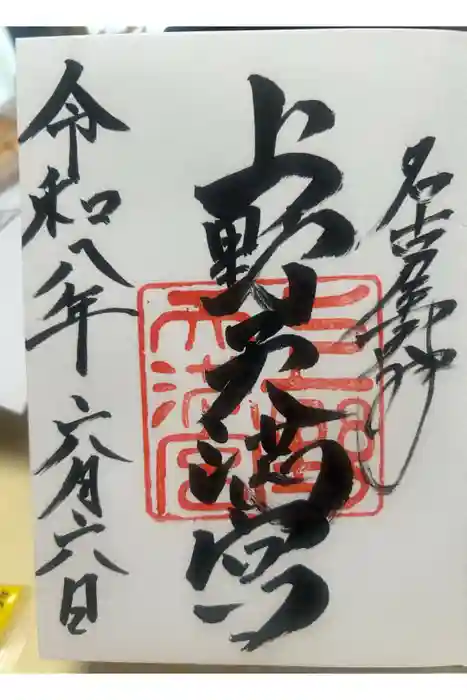 名古屋
上野天満宮
令和八年 六月六日